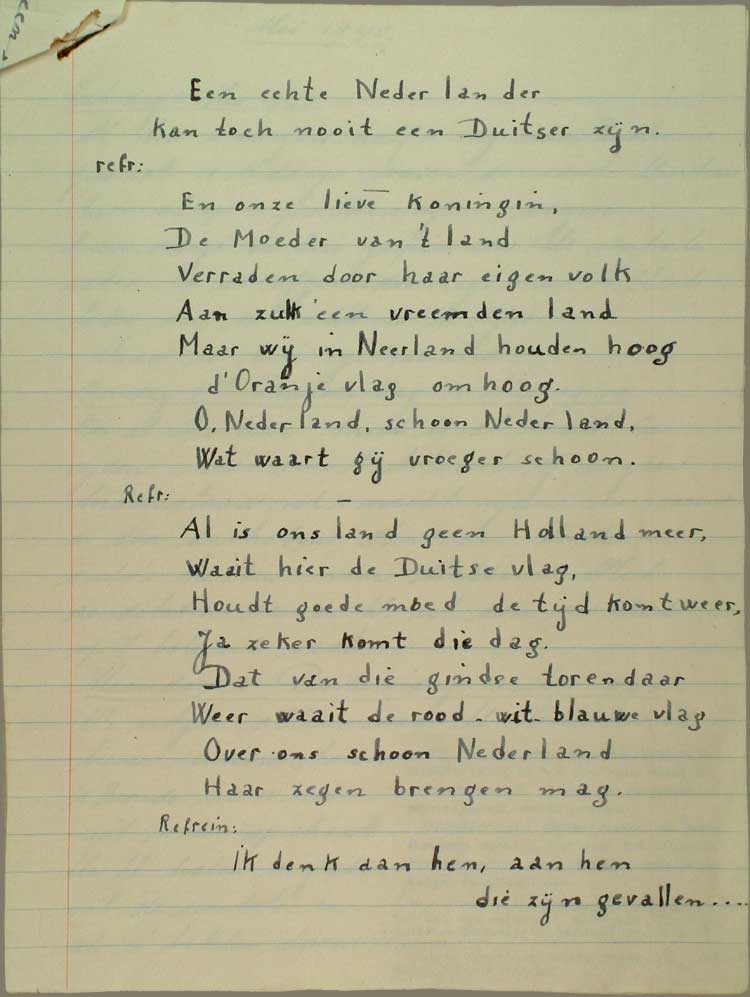 eem.
Een echte Nederlander
kan toch nooit een Duitser zijn.
refr:
En onze lieve Koningin,
De Moeder van 't land
Verraden door haar eigen volk
Aan zulk 'een vreemden land
Maar wij in Neerland houden hoog
d'Oranje vlag omhoog.
O, Nederland, schoon Nederland,
Wat waart gij vroeger schoon.
Refr:
Al is ons land geen Holland meer,
Waait hier de Duitse vlag,
Houdt goede moed de tijd komt weer,
Ja zeker komt die dag.
Dat van die gindse toren daar
Weer waait de rood-wit-blauwe vlag
Over ons schoon Nederland
Haar zegen brengen mag.
Refrein:
Ik denk aan hen, aan hen
die zijn gevallen....